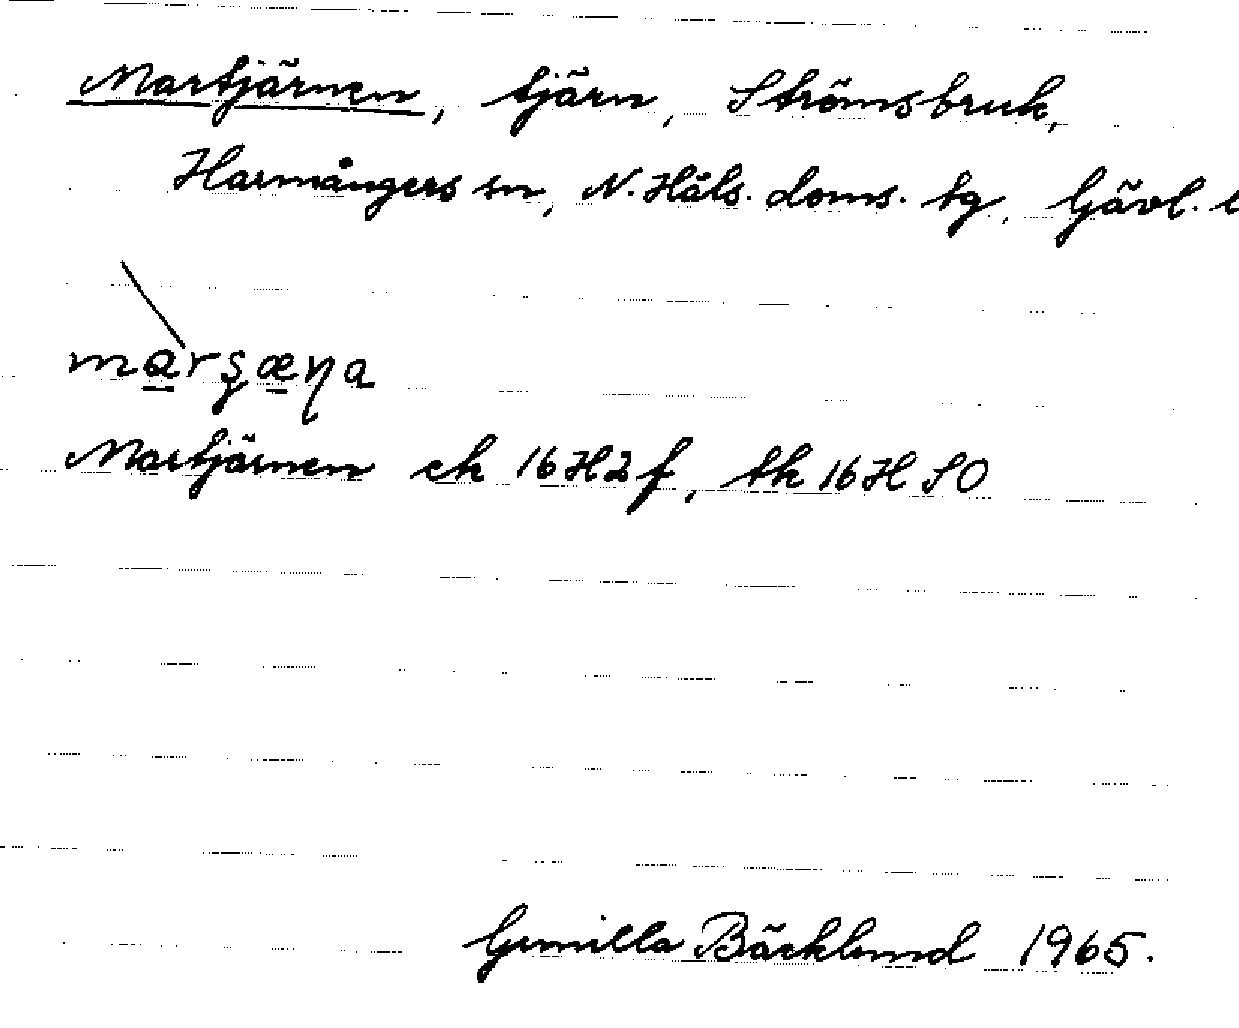 Martjärnen, tjärn, Strömsbruk,
Harmångers sn, N. Häls. doms. tg, Gävl. l
màrʂæɳa
Martjärnen ek 16H2f, tk 16H SO
Gunilla Bäcklund 1965.